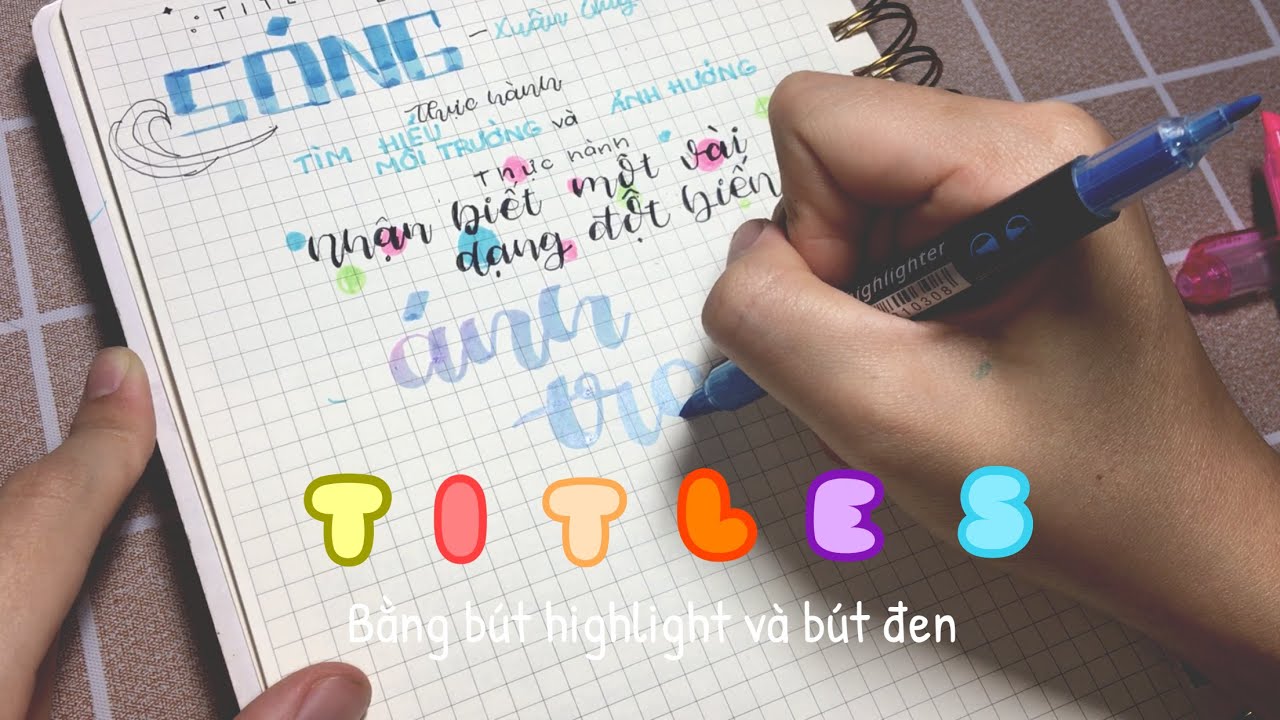 SÓNG – Xuân Quỳnh
Thực hành
TÌM HIỂU
MÔI TRƯỜNG và ẢNH HƯỞNG
Thực hành
nhận biết một vài
dạng đột biến
ánh
highlighter
10308
TITLES
Bằng bút highlight và bút đen